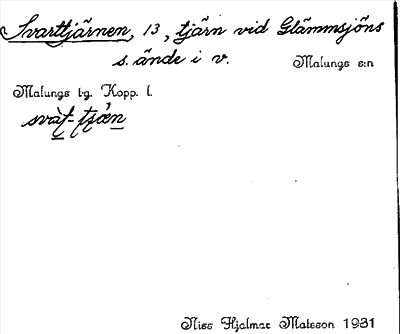 Svarttjärnen, 13, tjärn vid Glämmsjöns
s. ände i v. Malungs s:n
Malungs tg. Kopp. l.
Nils Hjalmar Matsson 1931